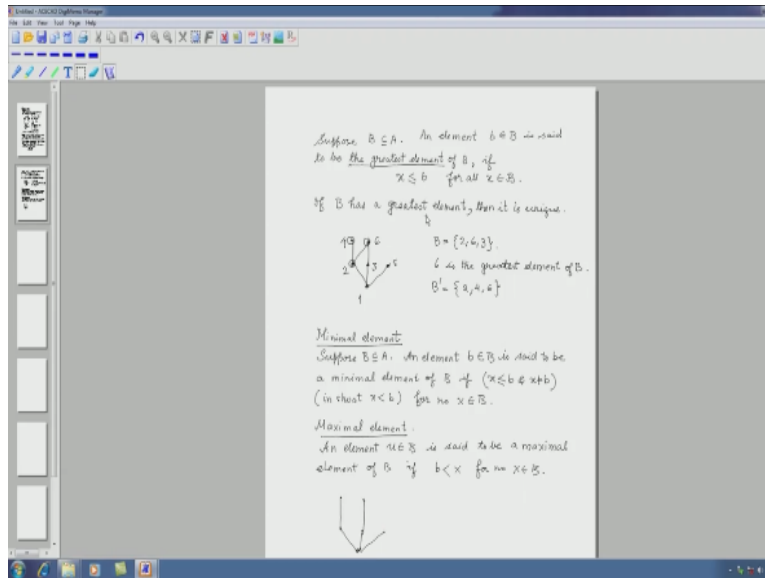 Untitled - ACECAD DigiMemo Manager
File Edit View Tool Page Help
Suppose B ⊆ A. An element b ∈ B is said
to be the greatest element of B, if
x ≤ b for all x ∈ B.
If B has a greatest element, then it is unique.
4 6
2 3 5
1
B = {2, 6, 3}
6 is the greatest element of B.
B' = {2, 4, 6}
Minimal element
Suppose B ⊆ A. An element b ∈ B is said to be
a minimal element of B if (x ≤ b & x ≠ b)
(in short x < b) for no x ∈ B.
Maximal element.
An element u ∈ B is said to be a maximal
element of B if b < x for no x ∈ B.